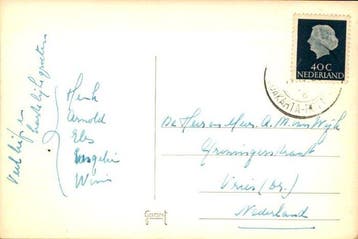 40 C
NEDERLAND
Veel liefs en
hartelijke groeten
Henk
Arnold
Els
Wim
De Heer en Mevr. A. M. van Wijk
Groningerstraat
Vries (Dr.)
Nederland